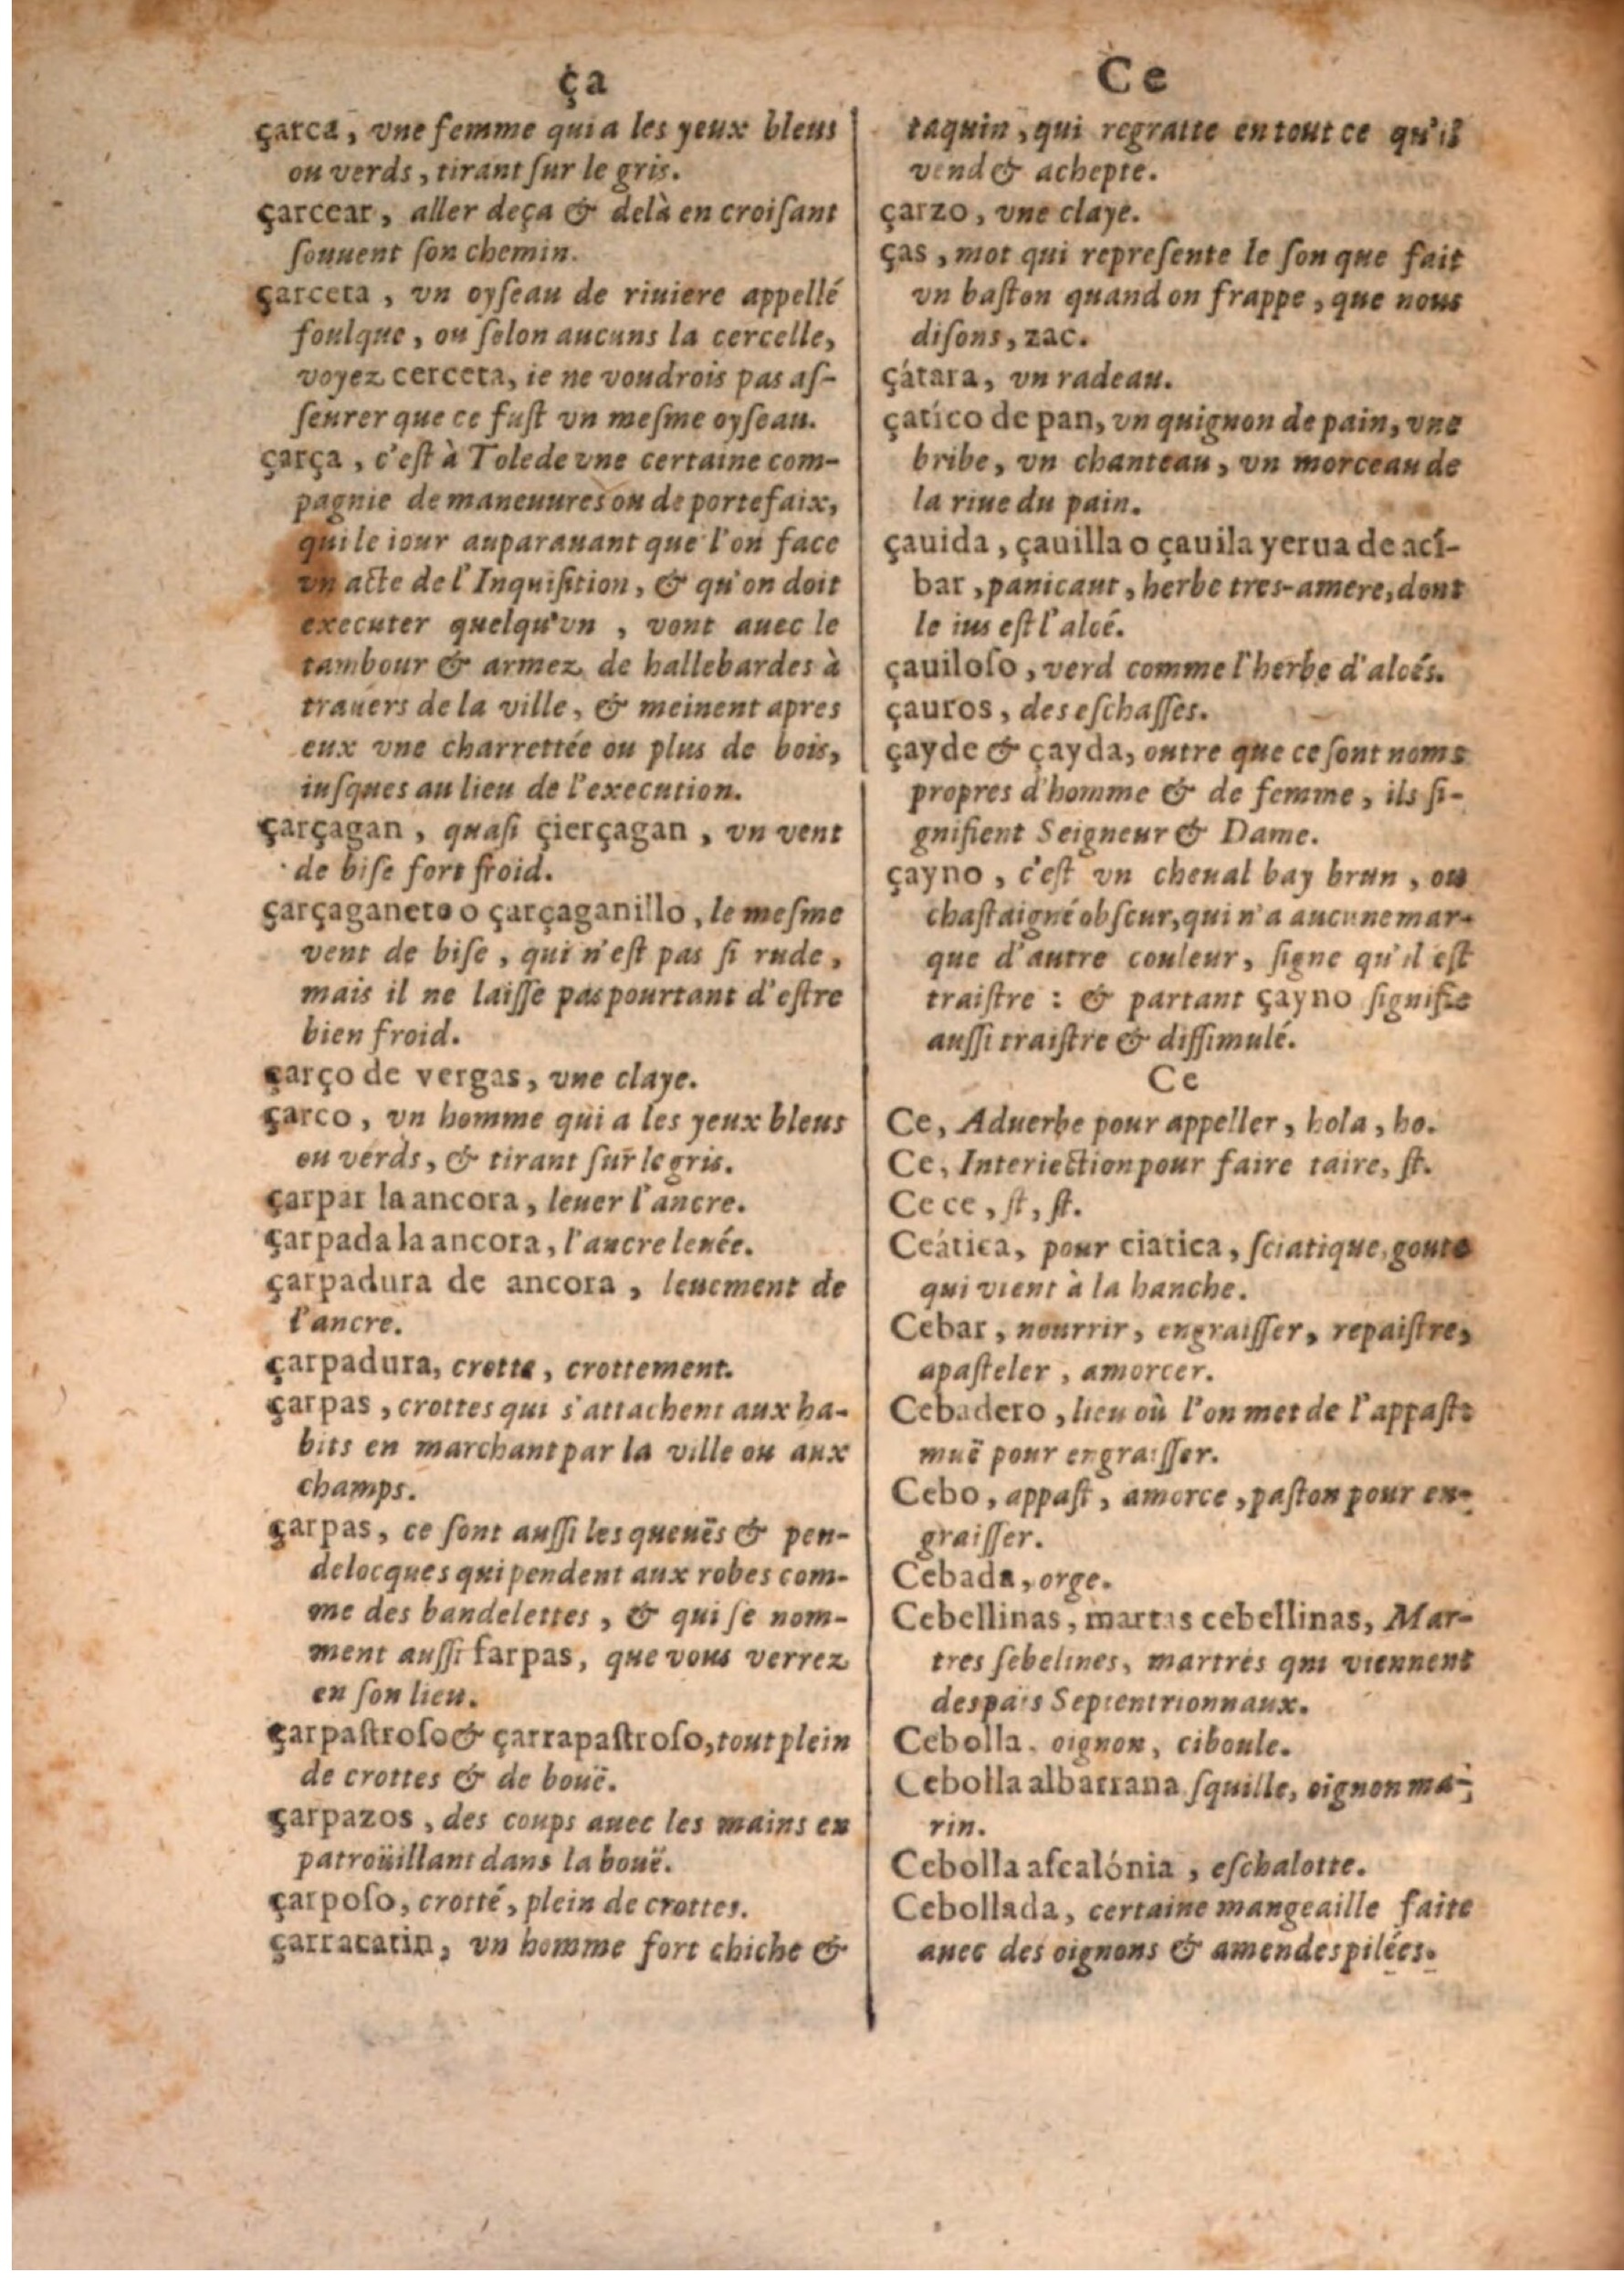 ça
çarca, vne femme qui a les yeux bleus
ou verds, tirant ſur le gris.
çarcear, aller deça & delà en croiſant
ſouuent ſon chemin.
çarceta, vn oyſeau de riuiere appellé
foulque, ou ſelon aucuns la cercelle,
voyez cerceta, ie ne voudrois pas aſ-
ſeurer que ce fuſt vn meſme oyſeau.
çarça, c'eſt à Tolede vne certaine com-
pagnie de maneuures ou de portefaix,
qui le iour auparauant que l'on face
vn acte de l'Inquiſition, & qu'on doit
executer quelqu'vn, vont auec le
tambour & armez de hallebardes à
trauers de la ville, & meinent apres
eux vne charrettée ou plus de bois,
iuſques au lieu de l'execution.
çarçagan, quaſi çierçagan, vn vent
de biſe fort froid.
çarçaganeto o çarçaganillo, le meſme
vent de biſe, qui n'eſt pas ſi rude,
mais il ne laiſſe pas pourtant d'eſtre
bien froid.
çarço de vergas, vne claye.
çarco, vn homme qui a les yeux bleus
ou verds, & tirant ſur le gris.
çarpar la ancora, leuer l'ancre.
çarpada la ancora, l'ancre leuée.
çarpadura de ancora, leuement de
l'ancre.
çarpadura, crotte, crottement.
çarpas, crottes qui s'attachent aux ha-
bits en marchant par la ville ou aux
champs.
çarpas, ce ſont auſſi les queuës & pen-
delocques qui pendent aux robes com-
me des bandelettes, & qui ſe nom-
ment auſſi farpas, que vous verrez
en ſon lieu.
çarpaſtroſo & çarrapaſtroſo, tout plein
de crottes & de bouë.
çarpazos, des coups auec les mains en
patroüillant dans la bouë.
çarpoſo, crotté, plein de crottes.
çarracatin, vn homme fort chiche &
Ce
taquin, qui regratte en tout ce qu'il
vend & achepte.
çarzo, vne claye.
ças, mot qui repreſente le ſon que fait
vn baſton quand on frappe, que nous
diſons, zac.
çátara, vn radeau.
çatíco de pan, vn quignon de pain, vne
bribe, vn chanteau, vn morceau de
la riue du pain.
çauida, çauilla o çauila yerua de ací-
bar, panicaut, herbe tres-amere, dont
le ius eſt l'aloé.
çauiloſo, verd comme l'herbe d'aloés.
çauros, des eſchaſſes.
çayde & çayda, outre que ce ſont noms
propres d'homme & de femme, ils ſi-
gnifient Seigneur & Dame.
çayno, c'eſt vn cheual bay brun, ou
chaſtaigné obſcur, qui n'a aucune mar-
que d'autre couleur, ſigne qu'il eſt
traiſtre : & partant çayno ſignifie
auſſi traiſtre & diſſimulé.
Ce
Ce, Aduerbe pour appeller, hola, ho.
Ce, Interiection pour faire taire, ſt.
Ce ce, ſt, ſt.
Ceática, pour ciatica, ſciatique, goute
qui vient à la hanche.
Cebar, nourrir, engraiſſer, repaiſtre,
apaſteler, amorcer.
Cebadero, lieu où l'on met de l'appaſt:
muë pour engraiſſer.
Cebo, appaſt, amorce, paſton pour en-
graiſſer.
Cebada, orge.
Cebellinas, martas cebellinas, Mar-
tres ſebelines, martres qui viennent
des païs Septentrionnaux.
Cebolla, oignon, ciboule.
Cebolla albarrana ſquille, oignon ma-
rin.
Cebolla aſcalónia, eſchalotte.
Cebollada, certaine mangeaille faite
auec des oignons & amendes pilées.